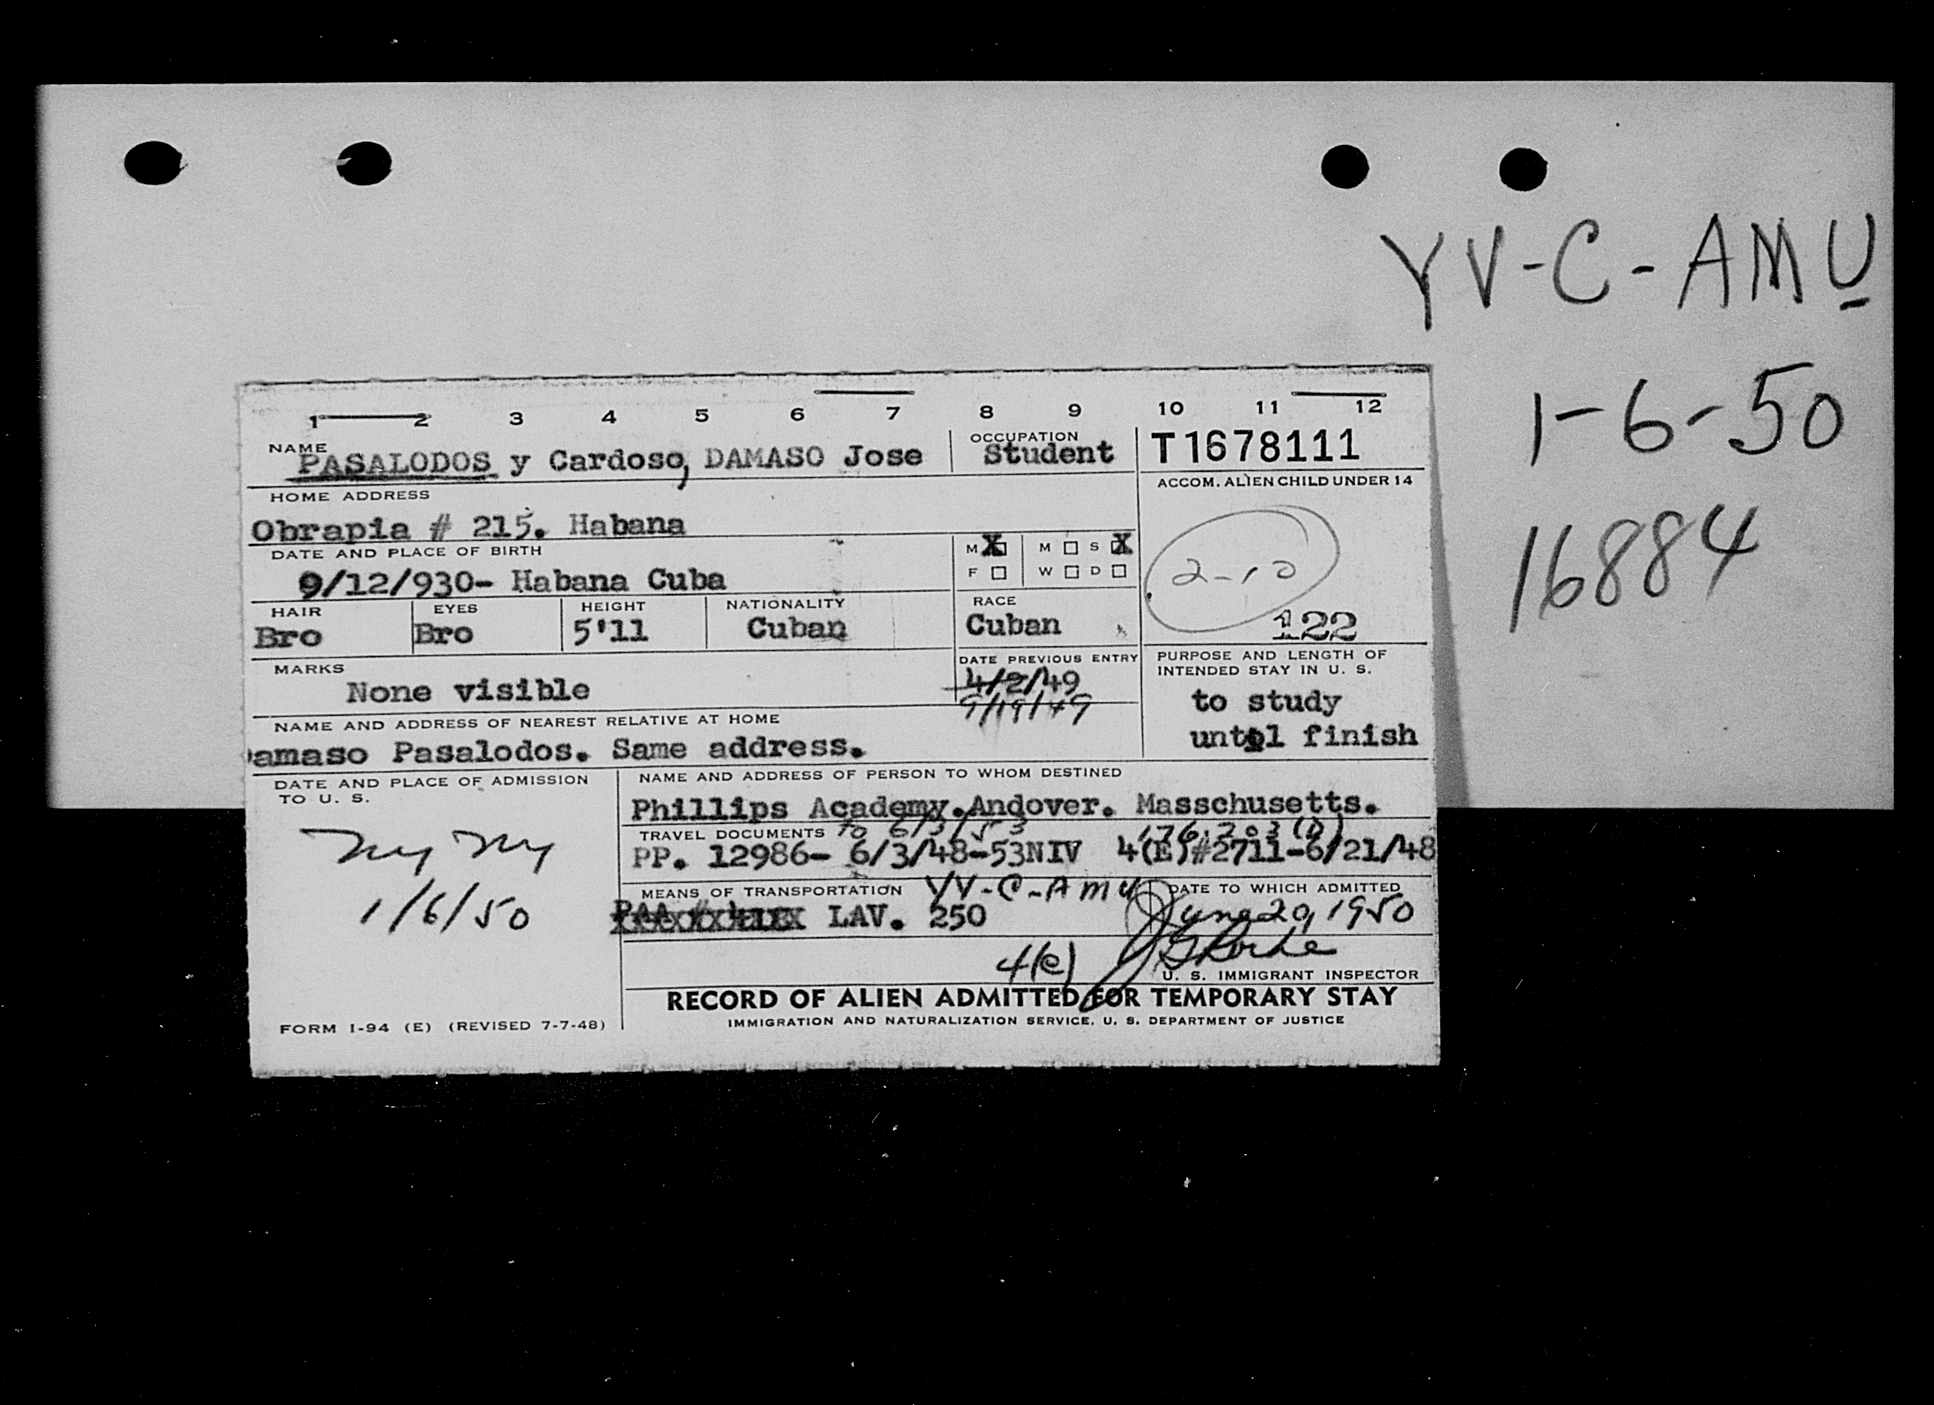 YV-C-AMU
1-6-50
16884
1 2 3 4 5 6 7 8 9 10 11 12
NAME
PASALODOS y Cardoso, DAMASO Jose
OCCUPATION
Student
T1678111
ACCOM. ALIEN CHILD UNDER 14
HOME ADDRESS
Obrapia # 215. Habana
DATE AND PLACE OF BIRTH
9/12/930- Habana Cuba
M X M S X
F W D
2-10
122
HAIR
Bro
EYES
Bro
HEIGHT
5'11
NATIONALITY
Cuban
RACE
Cuban
MARKS
None visible
DATE PREVIOUS ENTRY
4/2/49
9/19/49
PURPOSE AND LENGTH OF
INTENDED STAY IN U. S.
to study
until finish
NAME AND ADDRESS OF NEAREST RELATIVE AT HOME
amaso Pasalodos. Same address.
DATE AND PLACE OF ADMISSION
TO U. S.
NY NY
1/6/50
NAME AND ADDRESS OF PERSON TO WHOM DESTINED
Phillips Academy.Andover. Masschusetts.
TRAVEL DOCUMENTS to 6/3/53 176,203(D)
PP. 12986- 6/3/48-53NIV 4(E)#2711-6/21/48
MEANS OF TRANSPORTATION YV-C-AMU
LAV. 250
DATE TO WHICH ADMITTED
June 20, 1950
4(e)
U. S. IMMIGRANT INSPECTOR
RECORD OF ALIEN ADMITTED FOR TEMPORARY STAY
IMMIGRATION AND NATURALIZATION SERVICE, U. S. DEPARTMENT OF JUSTICE
FORM I-94 (E) (REVISED 7-7-48)